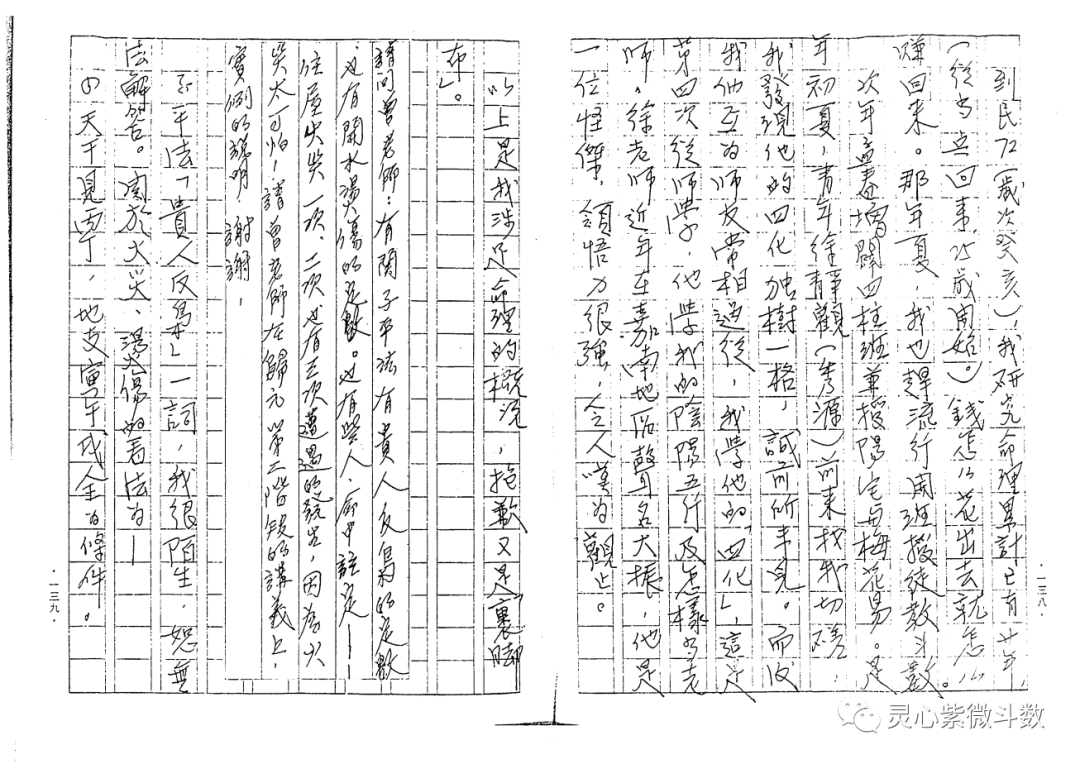 到民72(歲次癸亥),我研究命理累計已有廿年
(從当兵回来,25歲開始。)錢怎么花出去就怎么
賺回来。那年夏,我也趕流行開班授徒教斗數。
次年孟春增開四柱班兼授陽宅与梅花易。是
年初夏,青年徐靜觀(秀源)前来找我切磋,
我發現他的四化独樹一格,誠前所未見。而後
我他互为師友常相過從,我學他的「四化」,這是
第四次從師學,他學我的陰陽五行及怎樣当老
師。徐老師近年在嘉南地區聲名大振,他是
一位怪傑,領悟力很強,令人嘆为觀止。
·一三八·
以上是我涉足命理的概況,抱歉又是「裹脚
布」。
請問曾老師:有関子平法有貴人反為的定數
,也有開水燙傷的定數。也有些人,命中註定——
住屋失災一次、二次,也有三次遭遇的發生,因为火
災太可怕,請曾老師在歸元第二階段的講義上,
實例的説明,謝謝,
子平法「貴人反為」一詞,我很陌生,恕無
法解答。関於火災、湯火傷的看法为—
(1)天干見丙丁,地支寅午戌全为條件。
·一三九·
灵心紫微斗数